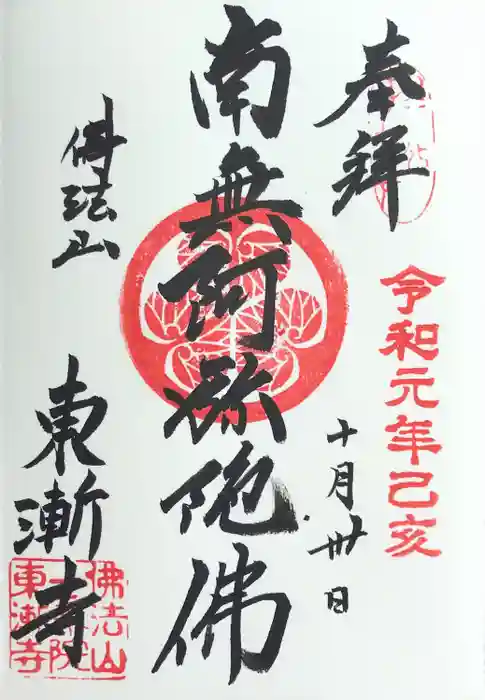 奉拝
令和元年己亥
十月卅日
南無阿弥陀佛
佛法山
東漸寺
佛法山
東漸寺